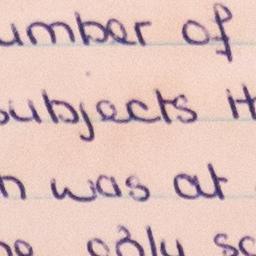 umber of
subjects it
n was at
only so